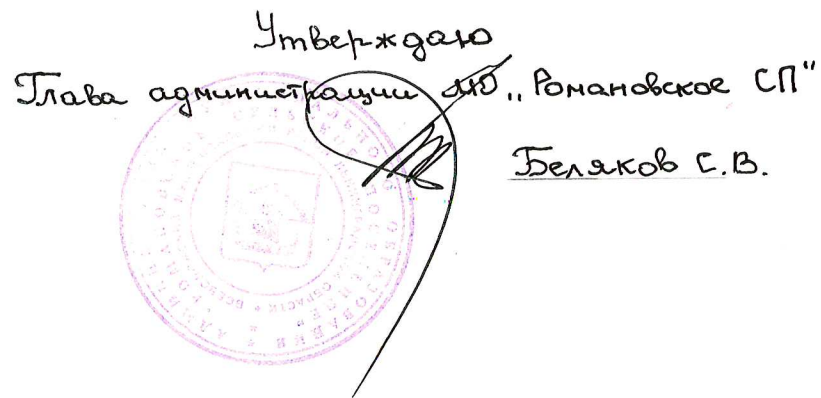 Утверждаю
Глава администрации МО „Романовское СП"
Беляков С.В.